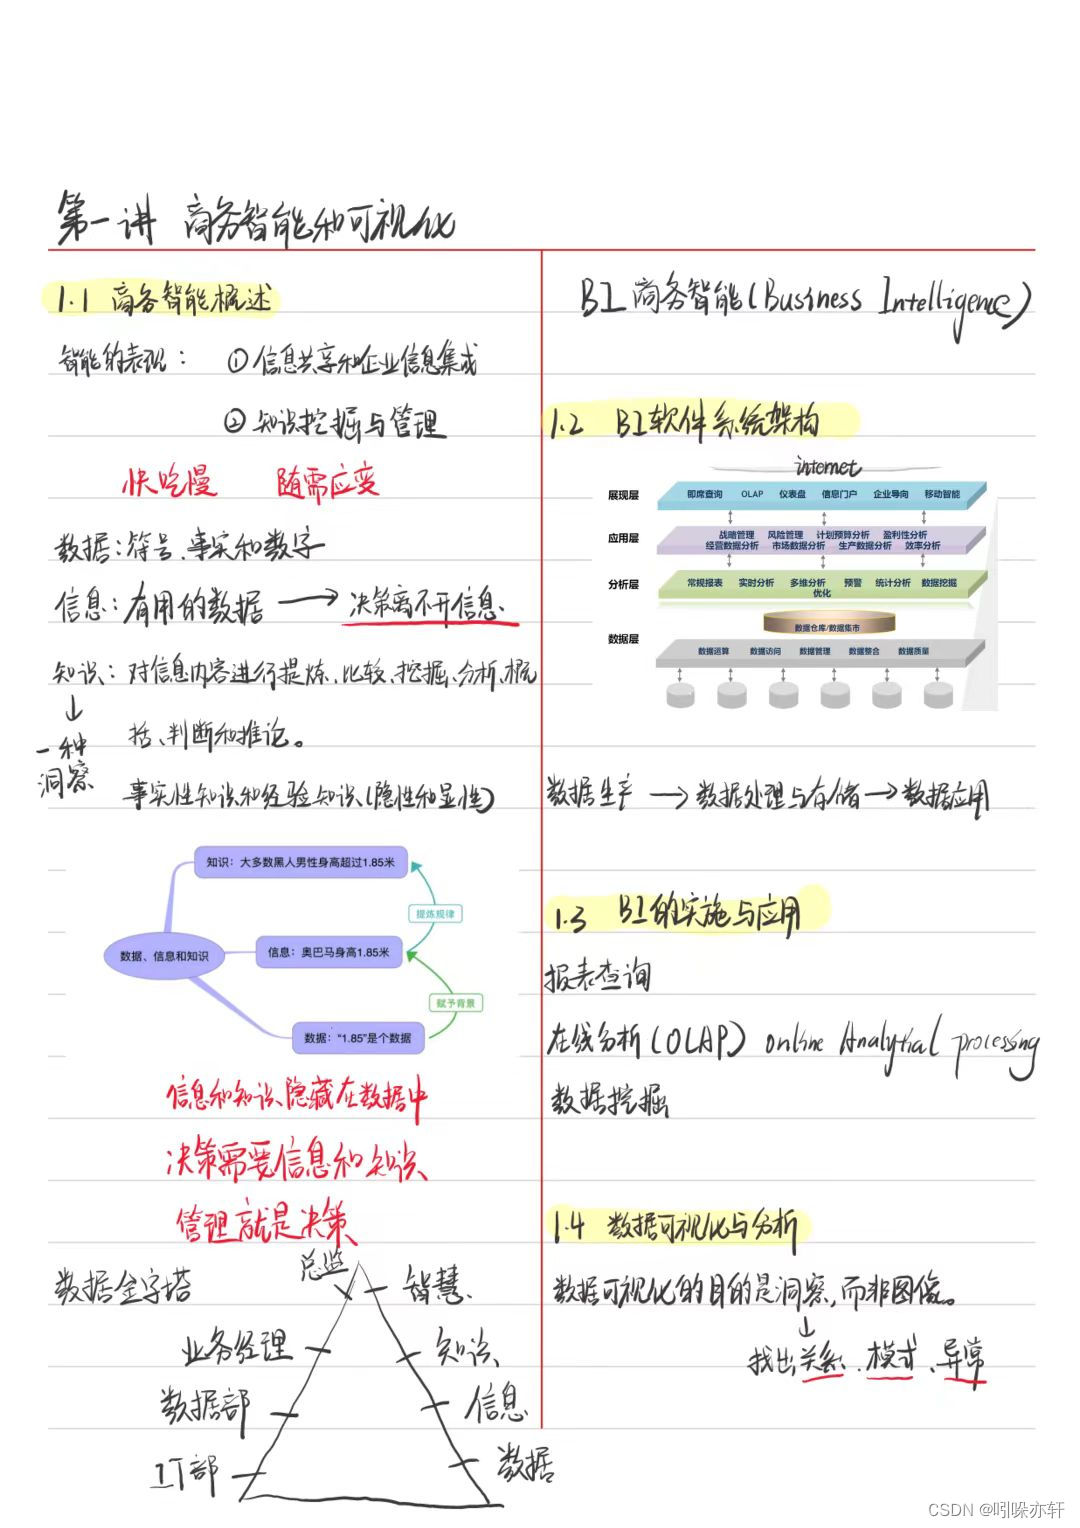 第一讲 商务智能和可视化
1.1 商务智能概述
智能的表现: ①信息共享和企业信息集成
②知识挖掘与管理
快吃慢 随需应变
数据:符号、事实和数字
信息:有用的数据 → 决策离不开信息.
知识:对信息内容进行提炼、比较、挖掘、分析、概
括、判断和推论。
↓
一种
洞察
事实性知识和经验知识(隐性和显性)
知识：大多数黑人男性身高超过1.85米
提炼规律
数据、信息和知识
信息：奥巴马身高1.85米
赋予背景
数据：“1.85”是个数据
信息和知识隐藏在数据中
决策需要信息和知识
管理就是决策
数据金字塔
总监 智慧.
业务经理 知识
数据部 信息
IT部 数据
BI 商务智能(Business Intelligence)
1.2 BI软件系统架构
internet
展现层 即席查询 OLAP 仪表盘 信息门户 企业导向 移动智能
应用层 战略管理 风险管理 计划预算分析 盈利性分析
经营数据分析 市场数据分析 生产数据分析 效率分析
分析层 常规报表 实时分析 多维分析 预警 统计分析 数据挖掘
优化
数据仓库/数据集市
数据层 数据运算 数据访问 数据管理 数据整合 数据质量
数据生产 → 数据处理与存储 → 数据应用
1.3 BI的实施与应用
报表查询
在线分析(OLAP) online Analytial processing
数据挖掘
1.4 数据可视化与分析
数据可视化的目的是洞察,而非图像。
↓
找出关系、模式、异常
CSDN @吲哚亦轩